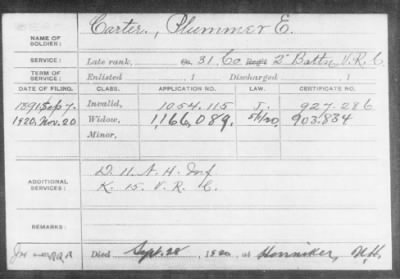 NAME OF SOLDIER: Carter, Plummer E.
SERVICE: Late rank, Co. 31, Co Reg't 2" Battn V. R. C.
TERM OF SERVICE: Enlisted , 1 Discharged , 1
DATE OF FILING. CLASS. APPLICATION NO. LAW. CERTIFICATE NO.
1891 Sep 7. Invalid, 1054.115 J. 927.286
1920, Nov. 20 Widow, 1,166,089. 903.834
Minor,
ADDITIONAL SERVICES: D. 11. N. H. Inf
K. 15. V. R. C.
REMARKS:
Died Sept. 28, 1920 at Henniker, N.H.